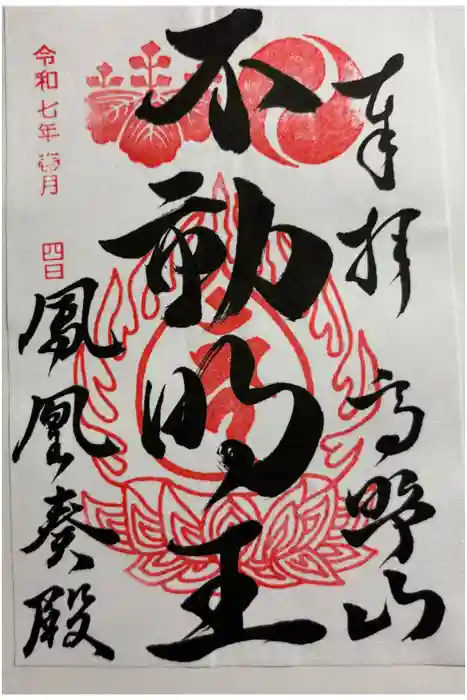 奉拝 高野山
不動明王
令和七年月四日
鳳凰奏殿